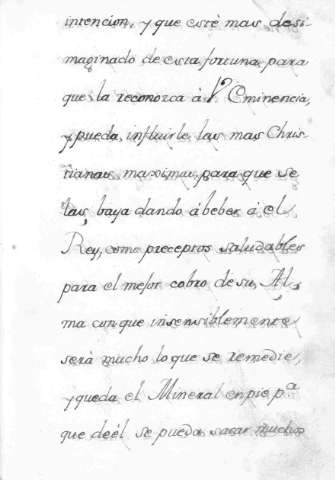 intencion, y que esté mas desi
maginado de esta fortuna, para
que la reconozca á V Eminencia,
y pueda, influirle las mas Chris
tianas maximas, para que se
las, baya dando á beber á el
Rey, como preceptos saludables
para el mejor cobro de su, Al,
ma conque insensiblemente
será mucho lo que se remedie,
y queda el Mineral en pie p.a
que de él se pueda sacar mucho